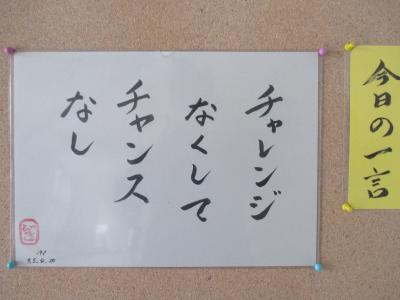 今日の一言
チャレンジ
なくして
チャンス
なし